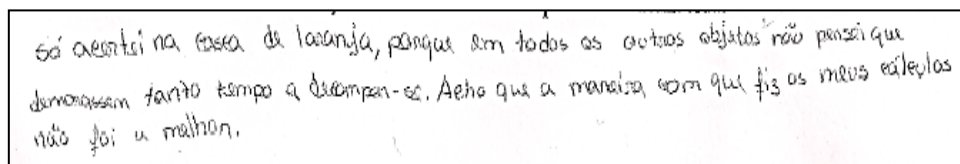 Só acertei na casca de laranja, porque em todos os outros objetos não pensei que
demorassem tanto tempo a decompor-se. Acho que a maneira com que fiz os meus cálculos
não foi a melhor.